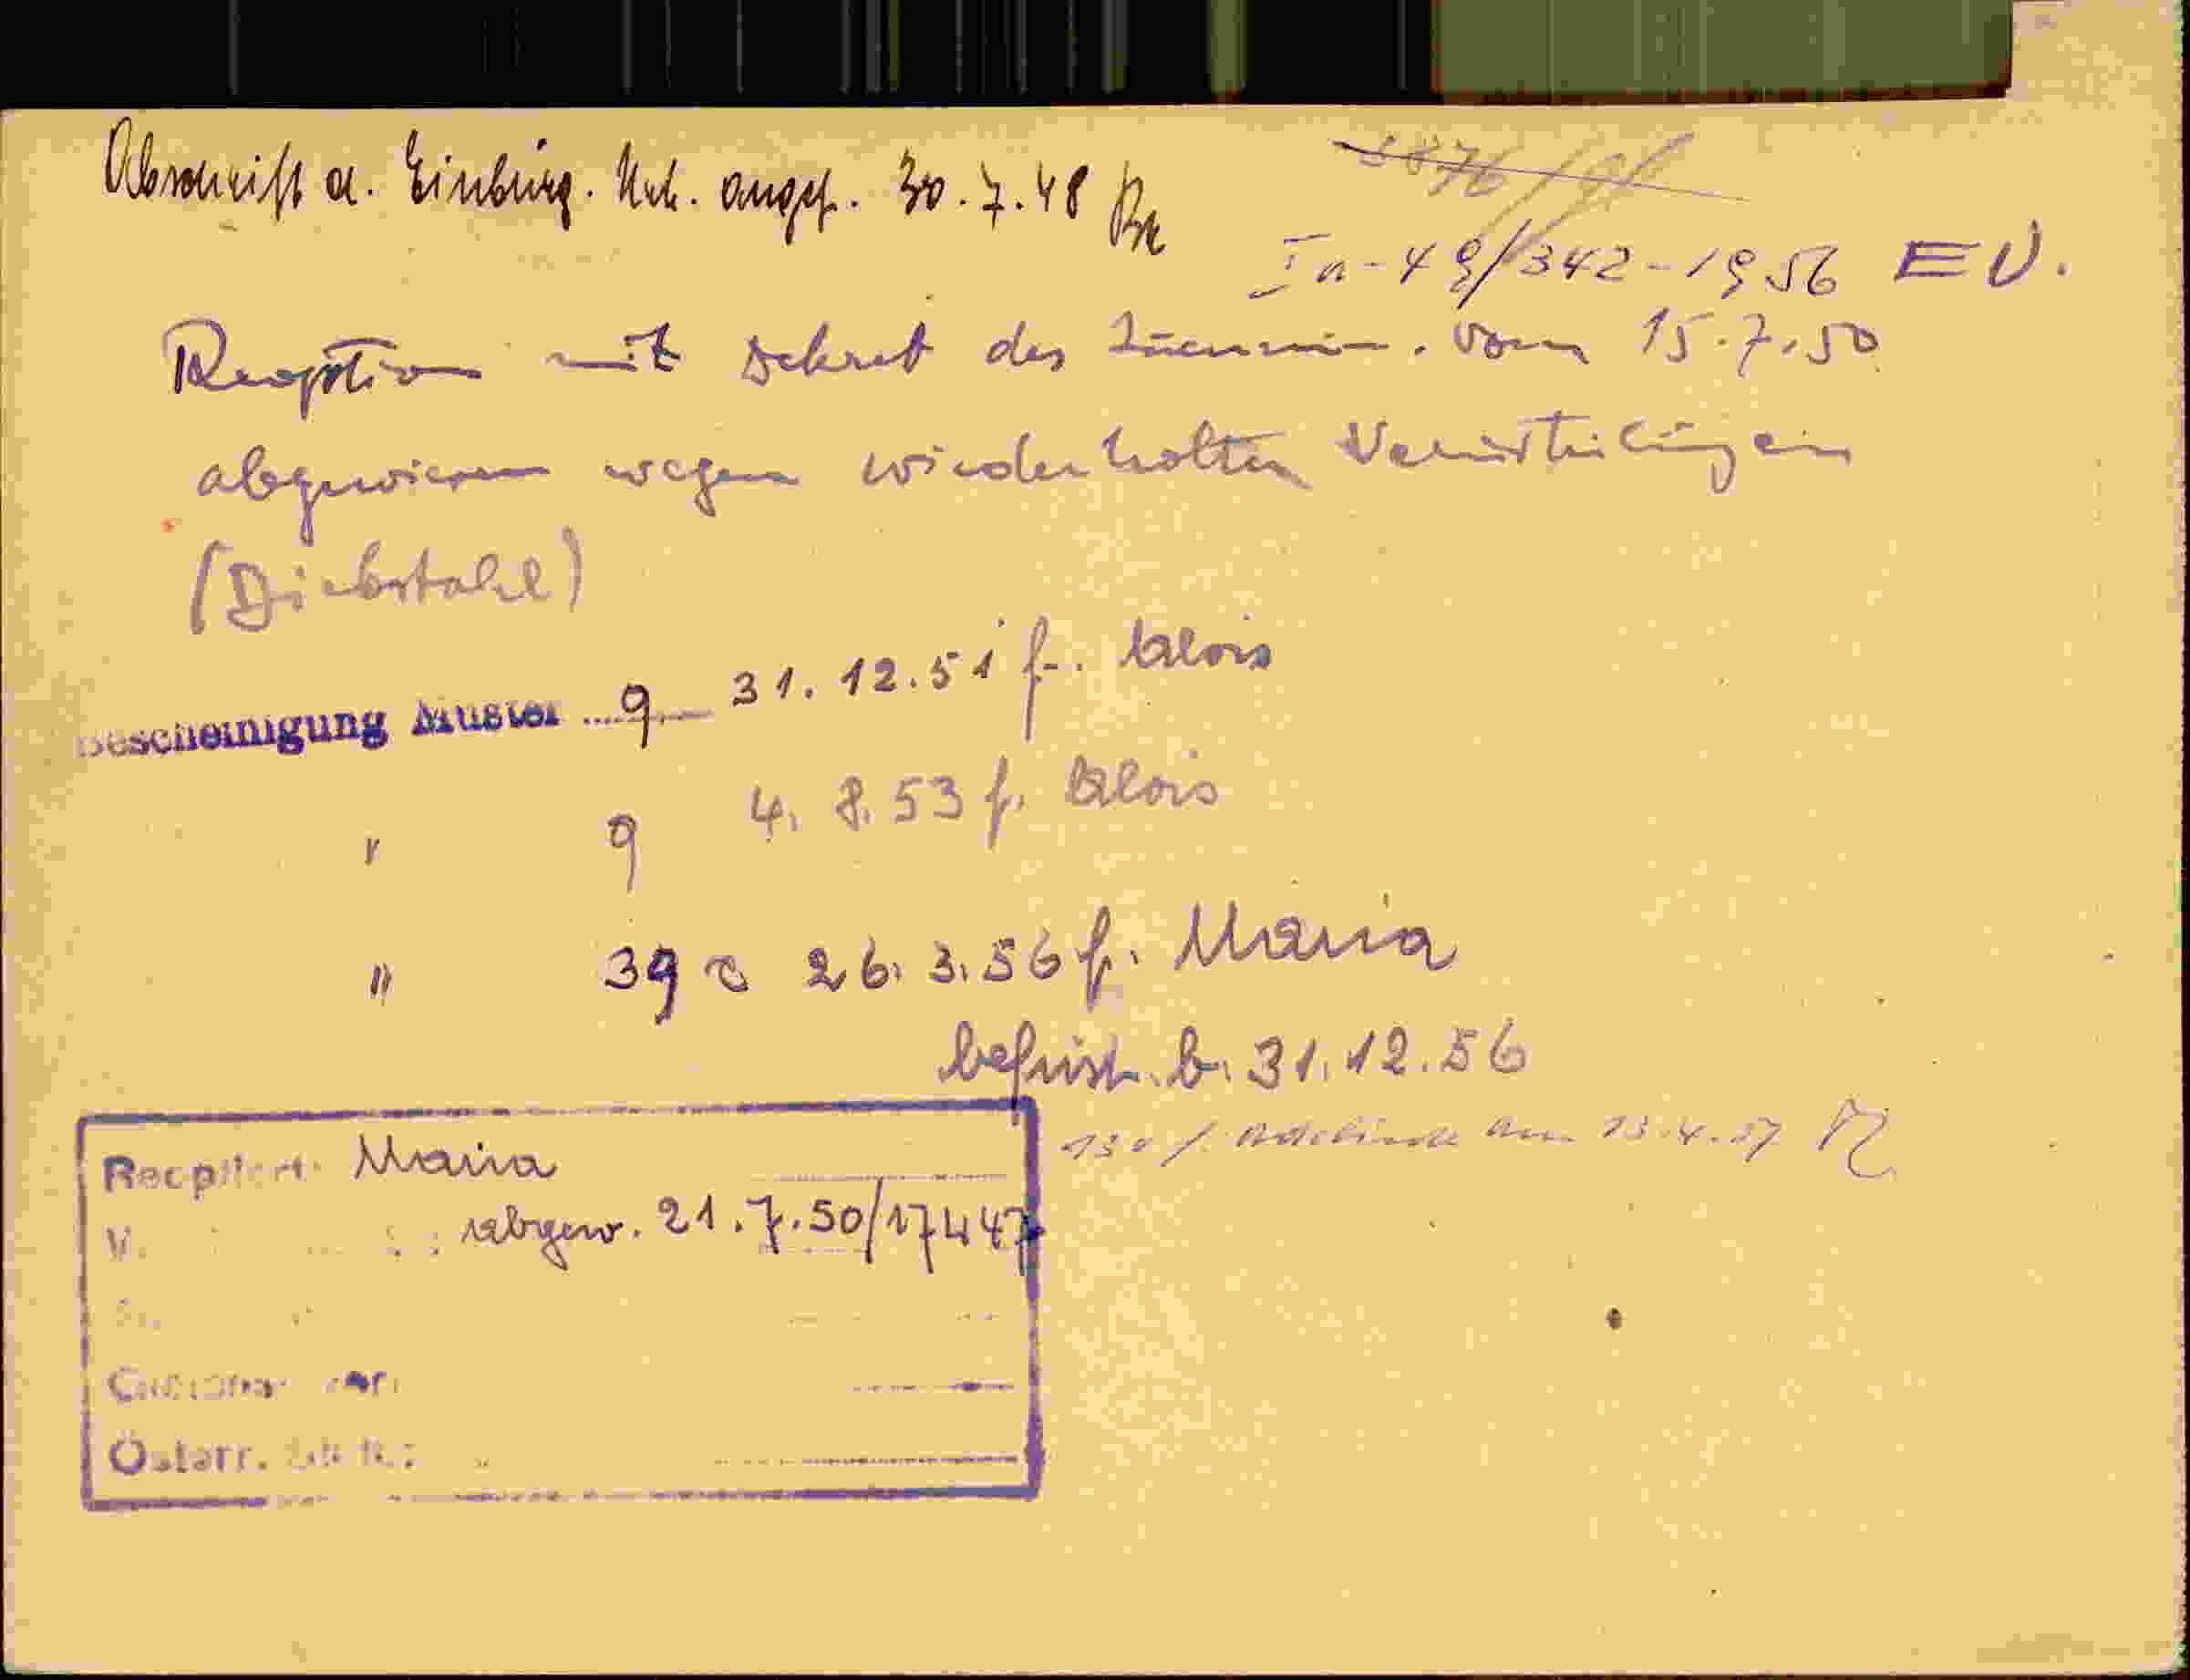 Abschrift d. Einbürg. Urk. ausgef. 30.7.48
Ia-49/342-1956 EV.
Reoption mit Dekret des Innenmin. vom 15.7.50
abgewiesen wegen wiederholten Verurteilungen
(Diebstahl)
Bescheinigung Muster 9 31.12.51 f. Alois
" 9 4.8.53 f. Alois
" 39 a 26.3.56 f. Maria
befrist. b. 31.12.56
am 13.4.57
Reoptiert: Maria
abgew. 21.7.50/17447
Österr.